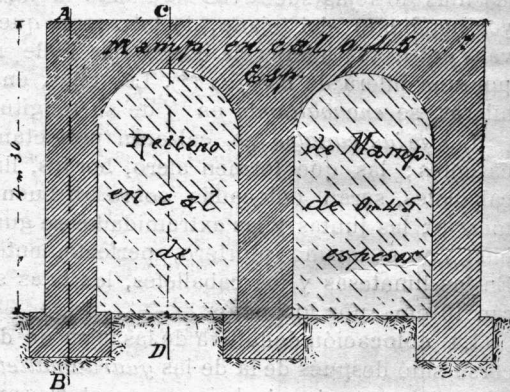 A
C
Mamp. en cal 0.45
Esp.
4m30
Relleno
en cal
de
de Mamp.
de 0m45
espesor
D
B